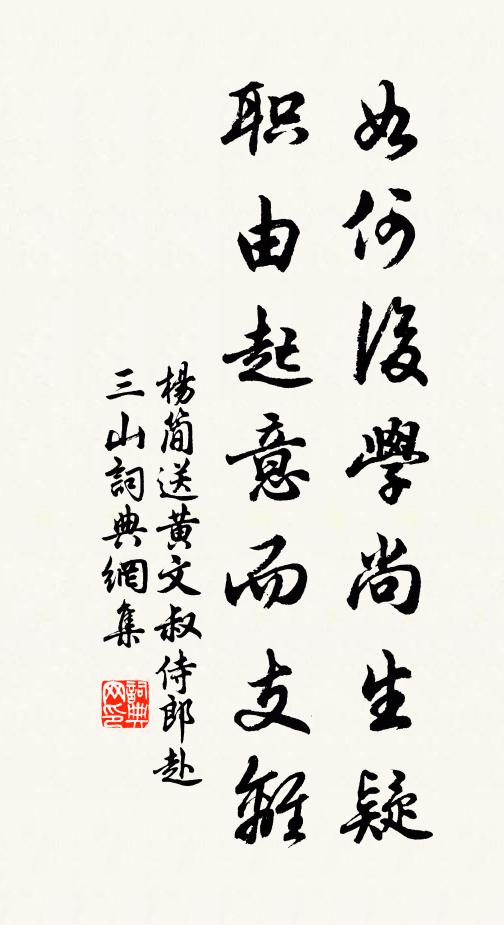 如何後學尚生疑
职由起意而支離
楊简送黄文叔侍郎赴
三山詞典網集
詞典网印